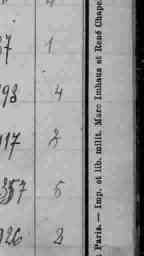 37 1
98 4
917 2
357 6
926 2
Paris. — Imp. et lib. milit. Marc Imhaus et René Chape